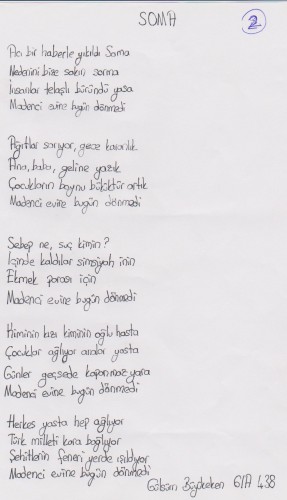 SOMA
2
Acı bir haberle yıkıldı Soma
Nedenini bize sakın sorma
İnsanlar telaşlı büründü yasa
Madenci evine bugün dönmedi
Ağıtlar sarıyor, gece karanlık
Ana, baba, geline yazık
Çocukların boynu büküktür artık
Madenci evine bugün dönmedi
Sebep ne, suç kimin?
İçinde kaldılar simsiyah inin
Ekmek parası için
Madenci evine bugün dönmedi
Kiminin kızı kiminin oğlu hasta
Çocuklar ağlıyor analar yasta
Günler geçsede kapanmaz yara
Madenci evine bugün dönmedi
Herkes yasta hep ağlıyor
Türk milleti kara bağlıyor
Şehitlerin feneri yerde ışıldıyor
Madenci evine bugün dönmedi
Gülsan 6/A 438